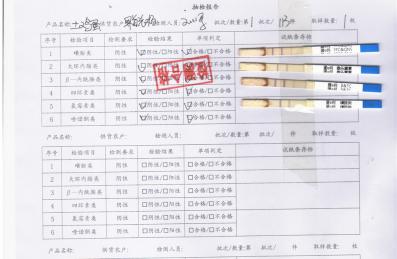 抽检报告
产品名称: 土鸡蛋 供货农户: 检测人员: 批次/数量:第1 批次/ 件 取样数量: 1 枚
序号 检验项目 检测要求 检验结果 单项判定 试纸条存档
1 喹胺类 阴性 ☑阴性/□阳性 ☑合格/□不合格
2 大环内酯类 阴性 ☑阴性/□阳性 ☑合格/□不合格
3 β-内酰胺类 阴性 ☑阴性/□阳性 □合格/□不合格
4 四环素类 阴性 ☑阴性/□阳性 □合格/□不合格
5 氯霉素类 阴性 ☑阴性/□阳性 □合格/□不合格
6 喹诺酮类 阴性 ☑阴性/□阳性 ☑合格/□不合格
检验合格
产品名称: 供货农户: 检测人员: 批次/数量:第 批次/ 件 取样数量: 枚
序号 检验项目 检测要求 检验结果 单项判定 试纸条存档
1 磺胺类 阴性 □阴性/□阳性 □合格/□不合格
2 大环内酯类 阴性 □阴性/□阳性 □合格/□不合格
3 β-内酰胺类 阴性 □阴性/□阳性 □合格/□不合格
4 四环素类 阴性 □阴性/□阳性 □合格/□不合格
5 氯霉素类 阴性 □阴性/□阳性 □合格/□不合格
6 喹诺酮类 阴性 □阴性/□阳性 □合格/□不合格
产品名称: 供货农户: 检测人员: 批次/数量:第 批次/ 件 取样数量: 枚